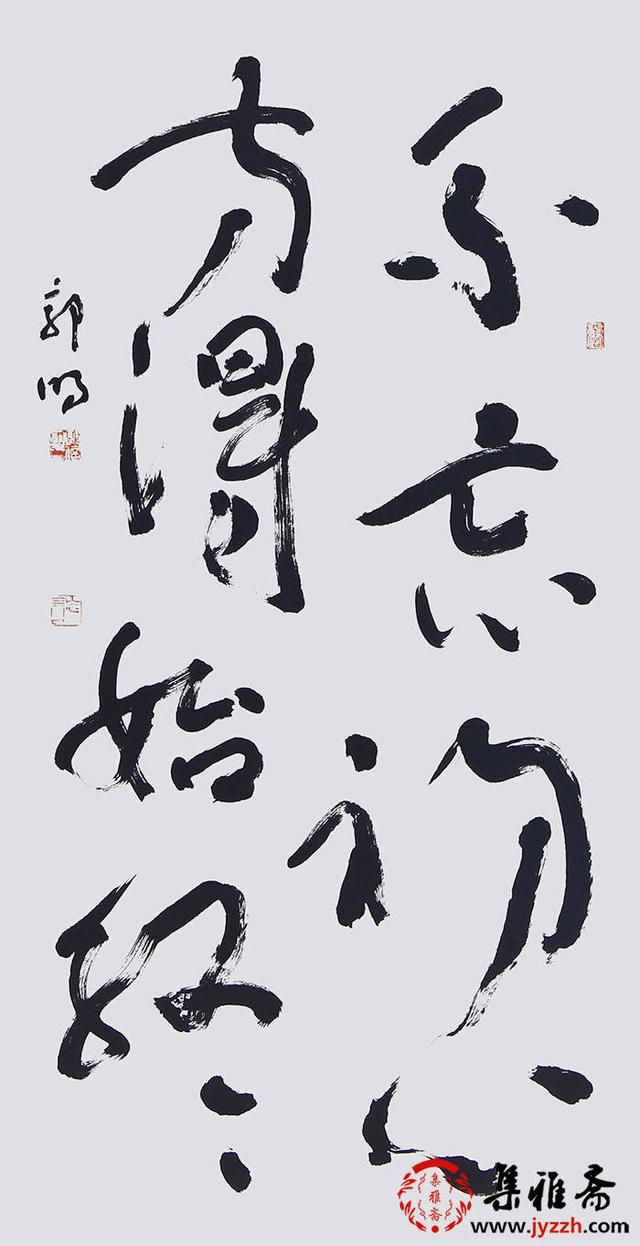 不忘初心
方得始终
郭明
集雅斋
集雅斋
www.jyzzh.com